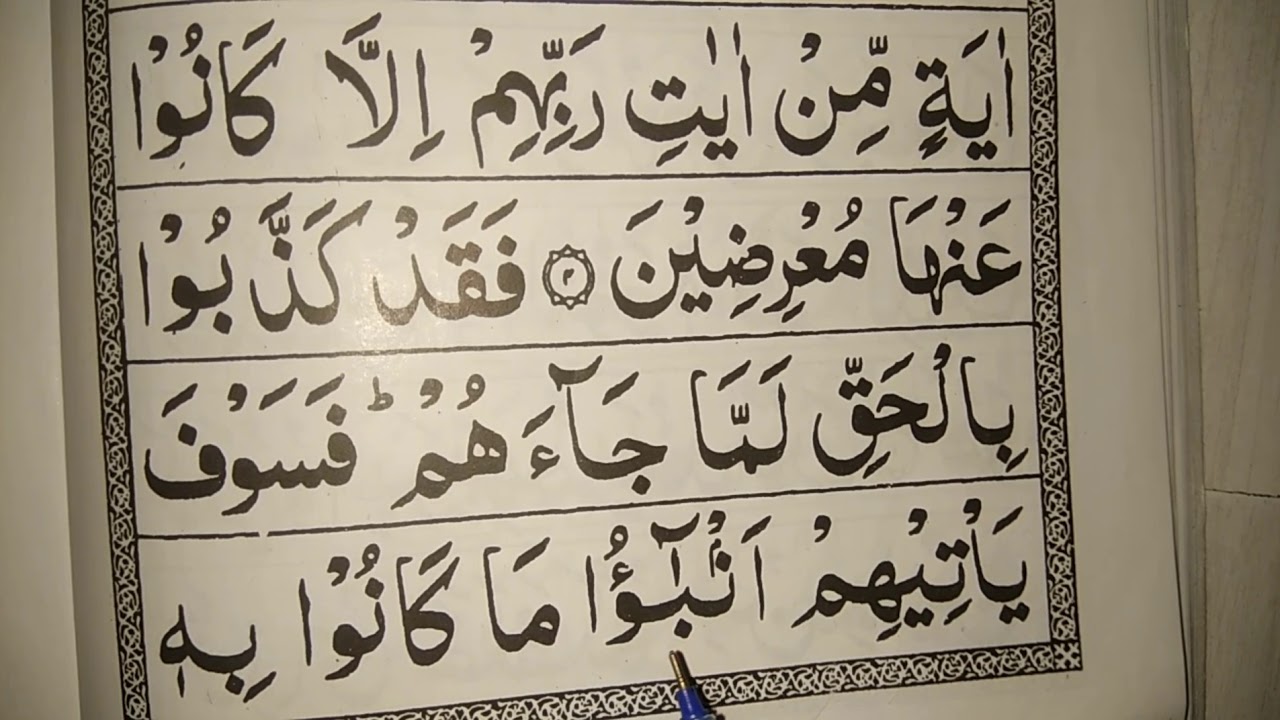 اٰیَةٍ مِّنْ اٰیٰتِ رَبِّهِمْ اِلَّا كَانُوْا
عَنْهَا مُعْرِضِیْنَ ۝۴ فَقَدْ كَذَّبُوْا
بِالْحَقِّ لَمَّا جَآءَهُمْ ؕ فَسَوْفَ
یَاْتِیْهِمْ اَنْۢبٰٓؤُا مَا كَانُوْا بِهٖ